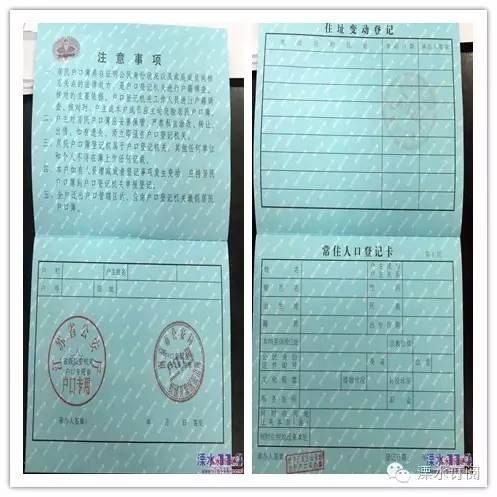 注意事项
一、居民户口簿具有证明公民身份状况以及家庭成员间相
互关系的法律效力,是户口登记机关进行户籍调查、
核对的主要依据。户口登记机关工作人员进行户籍调
查、核对时,户主或本户成员应主动交验居民户口簿。
二、户主对居民户口簿应妥善保管,严禁私自涂改、转让、
出借。如有遗失,须立即报告户口登记机关。
三、居民户口簿登记权属于户口登记机关,其他任何单位
和个人不得在簿上作任何记载。
四、本户如有人员增减或者登记事项发生变动,应持居民
户口簿向户口登记机关申报登记。
五、全户迁出户口管辖区的,应向户口登记机关缴销居民
户口簿。
户别
户主姓名
户号
住址
江苏省公安厅
省级公安机关
户口专用章
户口专用
承办人签章:
年 月 日 签发
溧水114
住址变动登记
常住人口登记卡
姓名
户主或与
户主关系
曾用名
性别
出生地
民族
籍贯
出生日期
本市县其他住址
宗教信仰
公民身份
证件编号
身高
血型
文化程度
婚姻状况
兵役状况
服务处所
职业
何时由何地
迁来本市(县)
何时由何地迁来本址
承办人签章:
登记日期:
溧水订阅